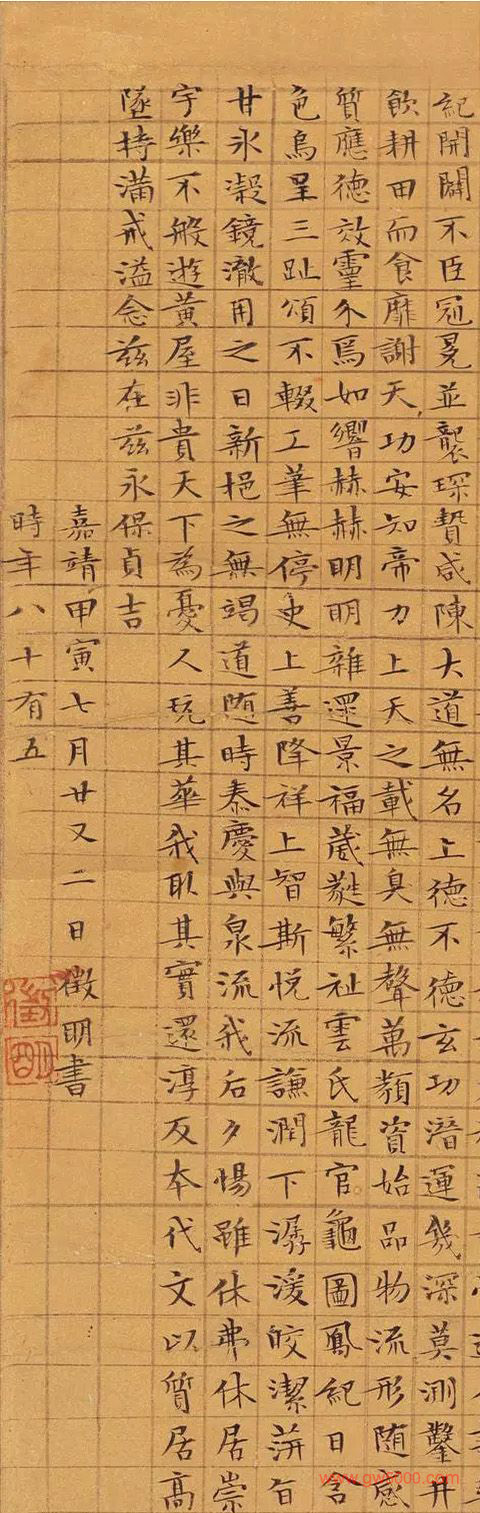 紀開闢不臣冠冕並襲琛贄咸陳大道無名上德不德玄功潛運幾深莫測鑿井
飲耕田而食靡謝天功安知帝力上天之載無臭無聲萬類資始品物流形随感
質應德效靈介焉如響赫赫明明雜遝景福葳蕤繁祉雲氏龍官龜圖鳳紀日含
色烏呈三趾頌不輟工筆無停史上善降祥上智斯悅流謙潤下潺湲皎潔蓱旨
甘氷凝鏡澈用之日新挹之無竭道随時泰慶與泉流我后夕惕雖休弗休居崇
宇樂不般遊黃屋非貴天下為憂人玩其華我取其實還淳反本代文以質居高
墜持滿戒溢念茲在茲永保貞吉
嘉靖甲寅七月廿又二日徵明書
時年八十有五
徵
明